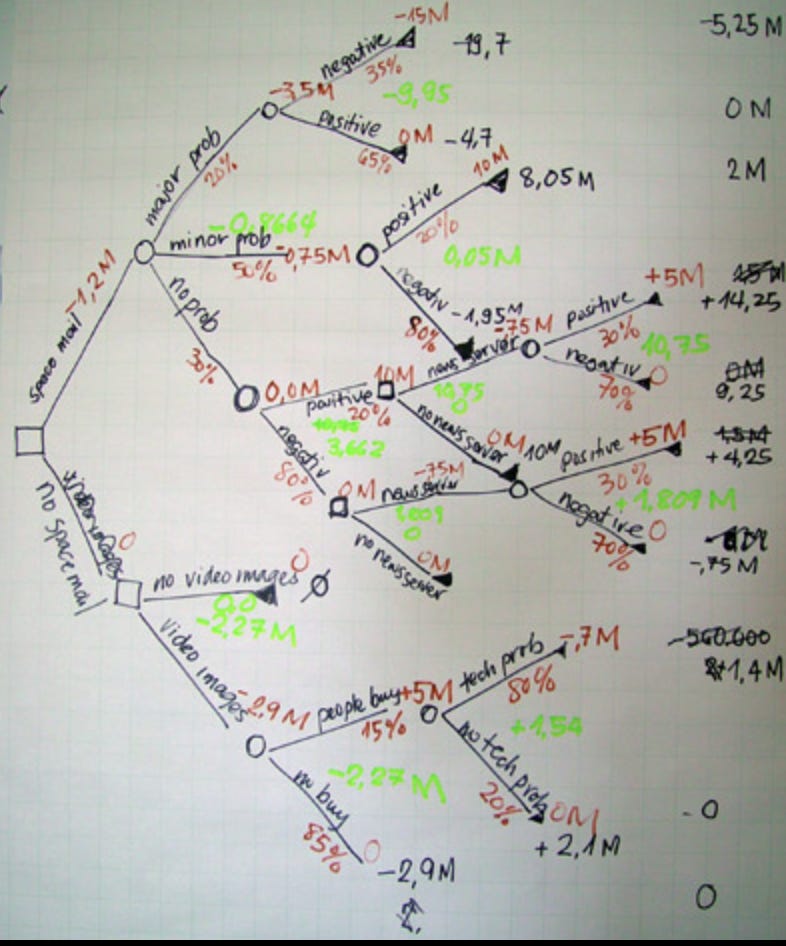 -15M
-5,25 M
negative
-19,7
35%
-3,5M
-9,95
0 M
positive
0M
-4,7
65%
major prob
20%
10M
8,05M
2M
positive
20%
-0,8664
minor prob
50%
-0,75M
0,05M
-1,2M
space mail
negativ
-1,95M
80%
no prob
30%
-75M
positive
+5M
30%
+14,25
10,75
negativ
0
70%
0M
9,25
news server
10,75
0
0,0M
positive
20%
10M
3,662
no news server
0M
10M
positive
+5M
30%
+4,25
negativ
80%
0M
-75M
newsserver
1,809
0
+1,809 M
negative
0
70%
-,75 M
no newsserver
0M
no space mail
0
no video images
0
0,0
-2,27 M
video images
-2,9 M
people buy
+5M
15%
tech prob
-,7M
80%
-560.000
+1,4 M
+1,54
no tech prob
20%
0M
+ 2,1 M
-2,27 M
no buy
85%
0
-2,9M
- 0
0